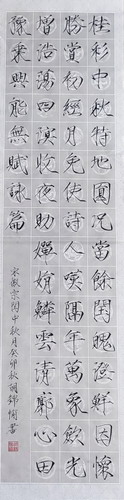 桂彩中秋特地圓况當餘閏魄澄鮮因懷
勝賞初經月免使詩人嘆隔年萬象斂光
增浩蕩四溟收夜助嬋娟鱗雲清廓心田
豫乘興能無賦詠篇
宋徽宗閏中秋月癸卯秋錦書